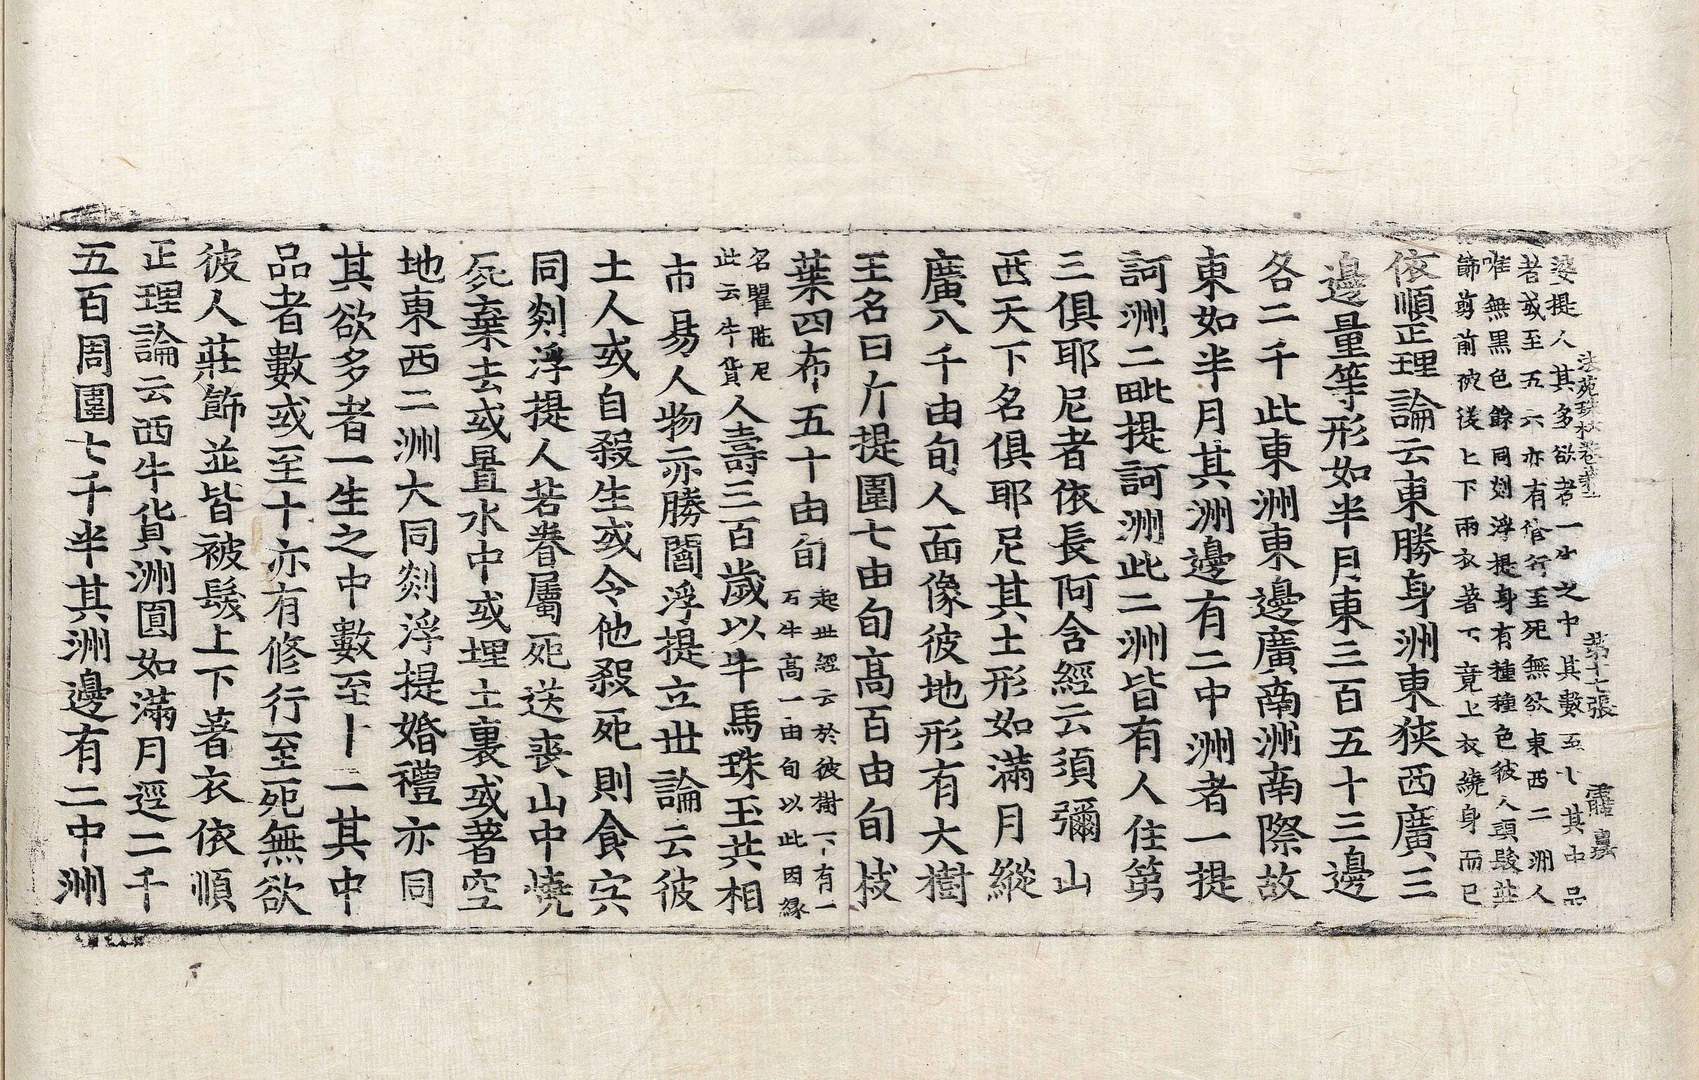 法苑珠林卷第二 第十二張
婆提人其多欲者一生之中其數五七其中品
者或至五六亦有修行至死無欲東西二洲人
唯無黑色餘同剡浮提身有種種色彼人頭髮莊
飾剪前被後上下兩衣著下竟上衣繞身而已
依順正理論云東勝身洲東狹西廣三
邊量等形如半月東三百五十三邊
各二千此東洲東邊廣南洲南際故
東如半月其洲邊有二中洲者一提
訶洲二毗提訶洲此二洲皆有人住第
三俱耶尼者依長阿含經云須彌山
西天下名俱耶尼其土形如滿月縱
廣八千由旬人面像彼地形有大樹
王名曰斤提圍七由旬高百由旬枝
葉四布五十由旬
起世經云於彼樹下有一
石牛高一由旬以此因緣
名瞿陁尼
此云牛貨
人壽三百歲以牛馬珠玉共相
市易人物亦勝閻浮提立世論云彼
土人或自殺生或令他殺死則食宍
同剡浮提人若眷屬死送喪山中燒
屍棄去或置水中或埋土裏或著空
地東西二洲大同剡浮提婚禮亦同
其欲多者一生之中數至十二其中
品者數或至十亦有修行至死無欲
彼人莊飾並皆被髮上下著衣依順
正理論云西牛貨洲圓如滿月逕二千
五百周圍七千半其洲邊有二中洲